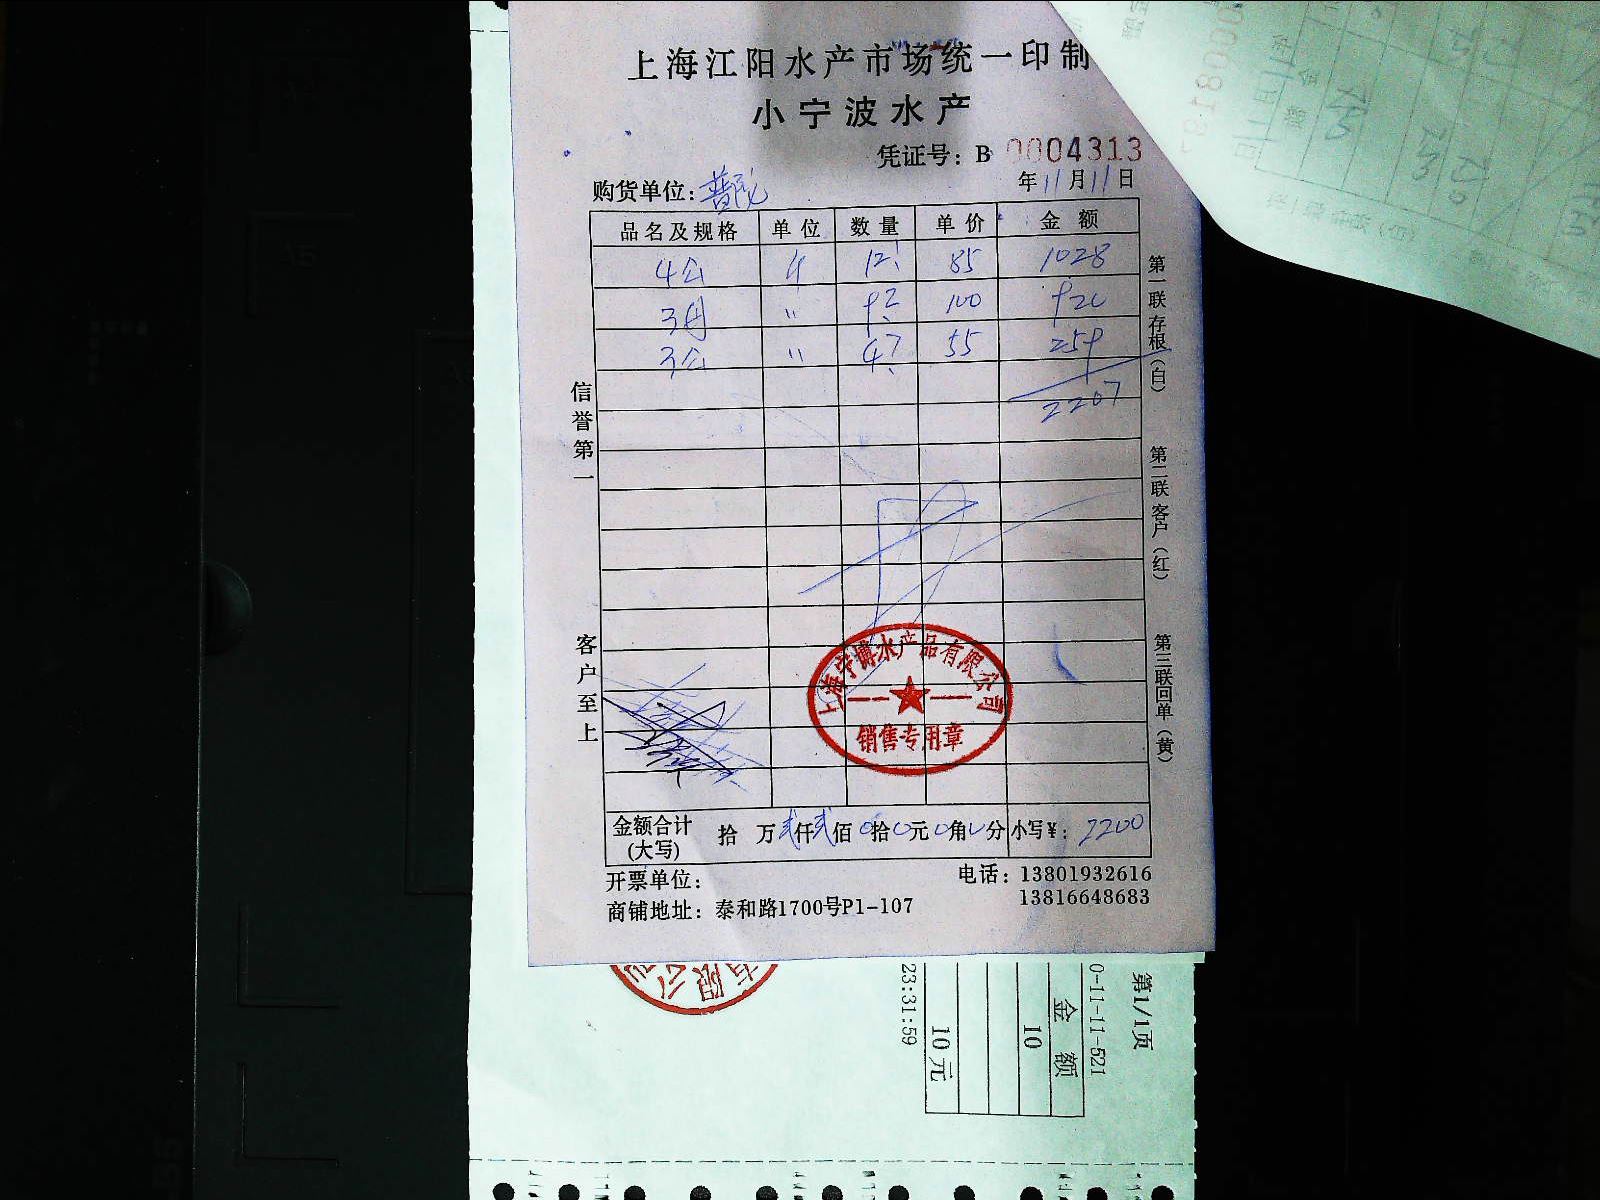 上海江阳水产市场统一印制
小宁波水产
凭证号：B 0004313
购货单位：普陀
年11月11日
品名及规格 单位 数量 单价 金额
4公 斤 12.1 85 1028
3母 〃 9.2 100 920
3公 〃 4.7 55 259
2207
信誉第一
客户至上
第一联存根（白）
第二联客户（红）
第三联回单（黄）
上海宁博水产品有限公司
销售专用章
金额合计（大写） 拾 万贰仟贰佰0拾0元0角0分 小写¥：2200
开票单位：
电话：13801932616
13816648683
商铺地址：泰和路1700号P1-107
有限公
23:31:59
10元
10
金额
0-11-11-521
第1/1页